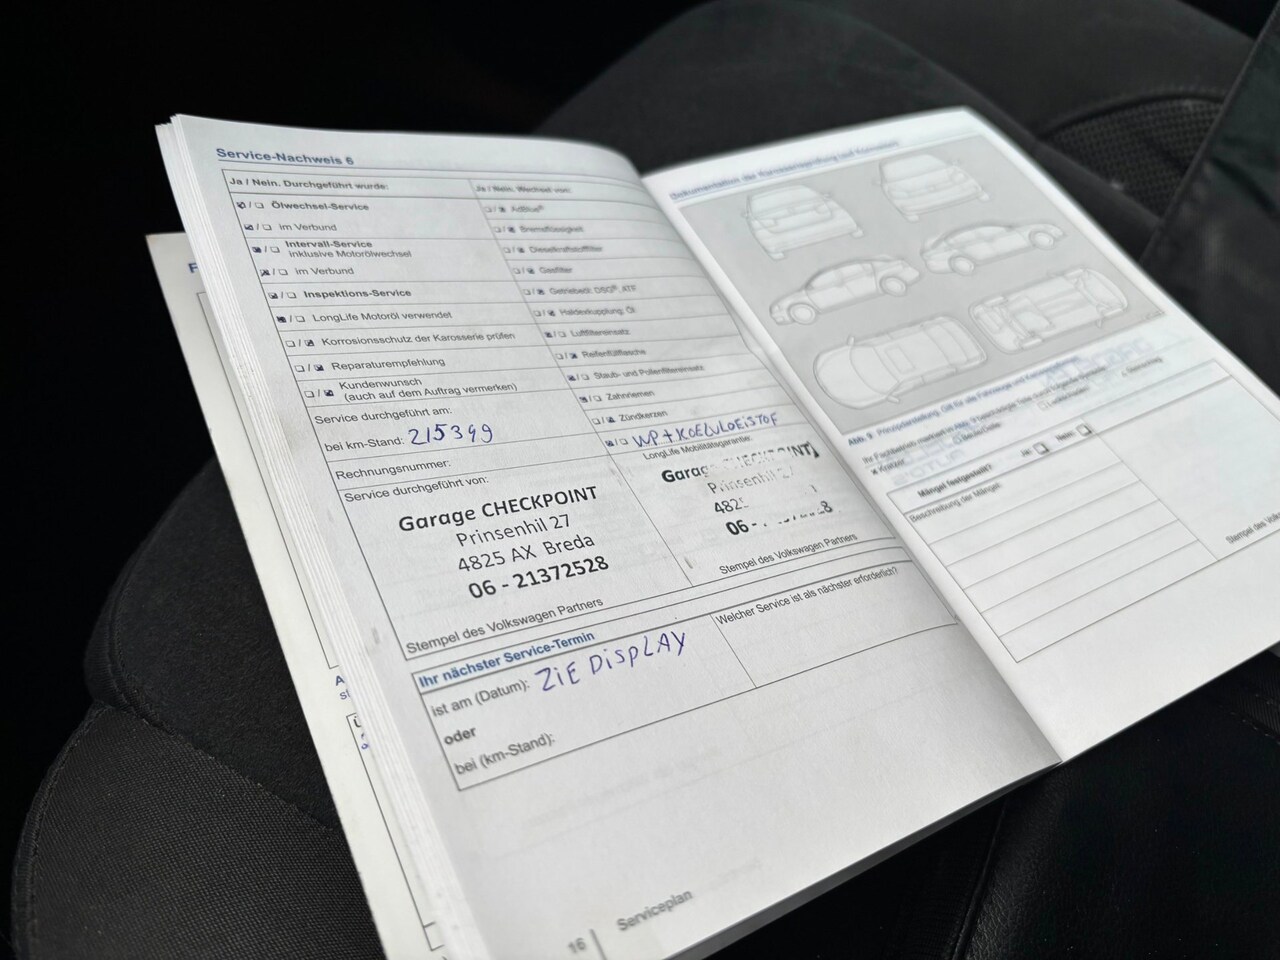 Service-Nachweis 6
Ja / Nein. Durchgeführt wurde:
Ölwechsel-Service
im Verbund
Intervall-Service
inklusive Motorölwechsel
im Verbund
Inspektions-Service
LongLife Motoröl verwendet
Korrosionsschutz der Karosserie prüfen
Reparaturempfehlung
Kundenwunsch
(auch auf dem Auftrag vermerken)
Service durchgeführt am:
bei km-Stand: 215399
Rechnungsnummer:
Service durchgeführt von:
Garage CHECKPOINT
Prinsenhil 27
4825 AX Breda
06 - 21372528
Stempel des Volkswagen Partners
Ja / Nein. Wechsel von:
AdBlue®
Bremsflüssigkeit
Dieselkraftstofffilter
Gasfilter
Getriebeöl: DSG®, ATF
Haldexkupplung: Öl
Luftfiltereinsatz
Reifenfüllflasche
Staub- und Pollenfiltereinsatz
Zahnriemen
Zündkerzen
WP + KOELVLOEISTOF
LongLife Mobilitätsgarantie:
Garage CHECKPOINT
Prinsenhil 27
482
06 -
Stempel des Volkswagen Partners
Ihr nächster Service-Termin
ist am (Datum): ZIE DISPLAY
oder
bei (km-Stand):
Welcher Service ist als nächster erforderlich?
16 Serviceplan
Dokumentation der Karosserieprüfung (auf Korrosion)
Abb. 9
Mängel festgestellt? Ja: Nein:
Beschreibung der Mängel:
Stempel des